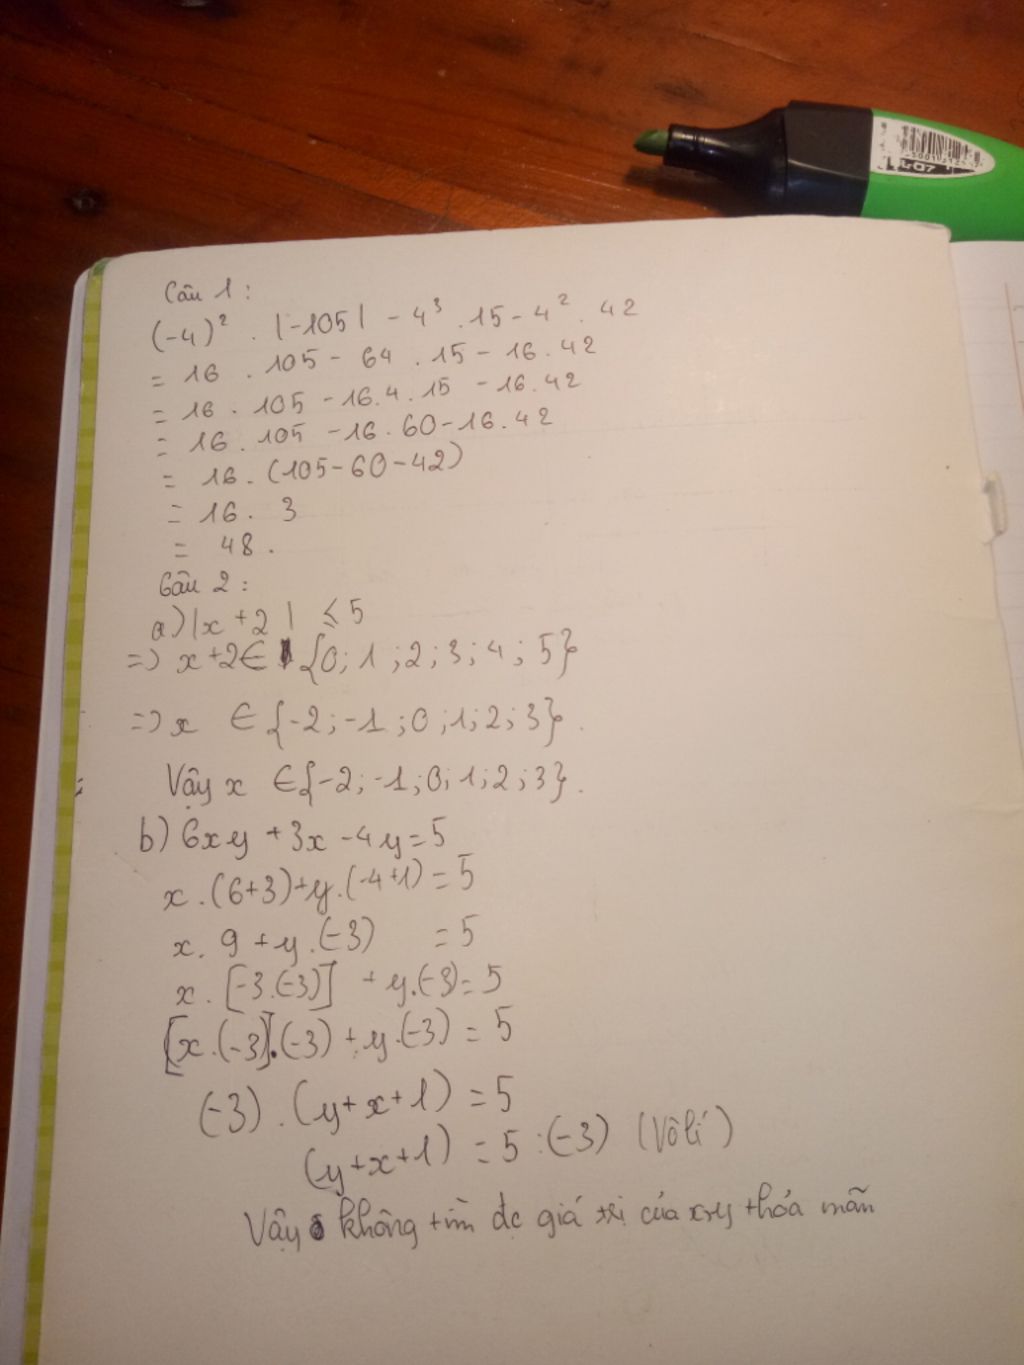 Câu 1 :
(-4)² . |-105| - 4³ . 15 - 4² . 42
= 16 . 105 - 64 . 15 - 16 . 42
= 16 . 105 - 16 . 4 . 15 - 16 . 42
= 16 . 105 - 16 . 60 - 16 . 42
= 16 . (105 - 60 - 42)
= 16 . 3
= 48 .
Câu 2 :
a) |x + 2| ≤ 5
=> x + 2 ∈ {0; 1; 2; 3; 4; 5}
=> x ∈ {-2; -1; 0; 1; 2; 3}.
Vậy x ∈ {-2; -1; 0; 1; 2; 3}.
b) 6xy + 3x - 4y = 5
x . (6+3) + y . (-4+1) = 5
x . 9 + y . (-3) = 5
x . [-3.(-3)] + y.(-3) = 5
[x . (-3)].(-3) + y.(-3) = 5
(-3) . (y+x+1) = 5
(y+x+1) = 5 : (-3) (Vô lí)
Vậy không tìm đc giá trị của xy thỏa mãn